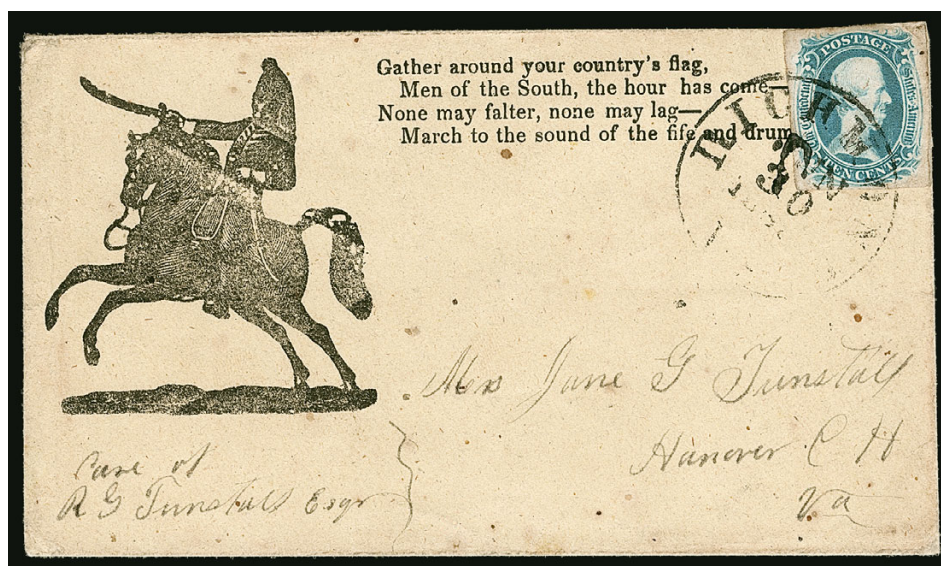 Gather around your country's flag,
Men of the South, the hour has come
None may falter, none may lag—
March to the sound of the fife and drum
POSTAGE
TEN CENTS
RICHM
30
Mrs Jane G Tunstall
Hanover C H
Va
Care of
R G Tunstall Esqr